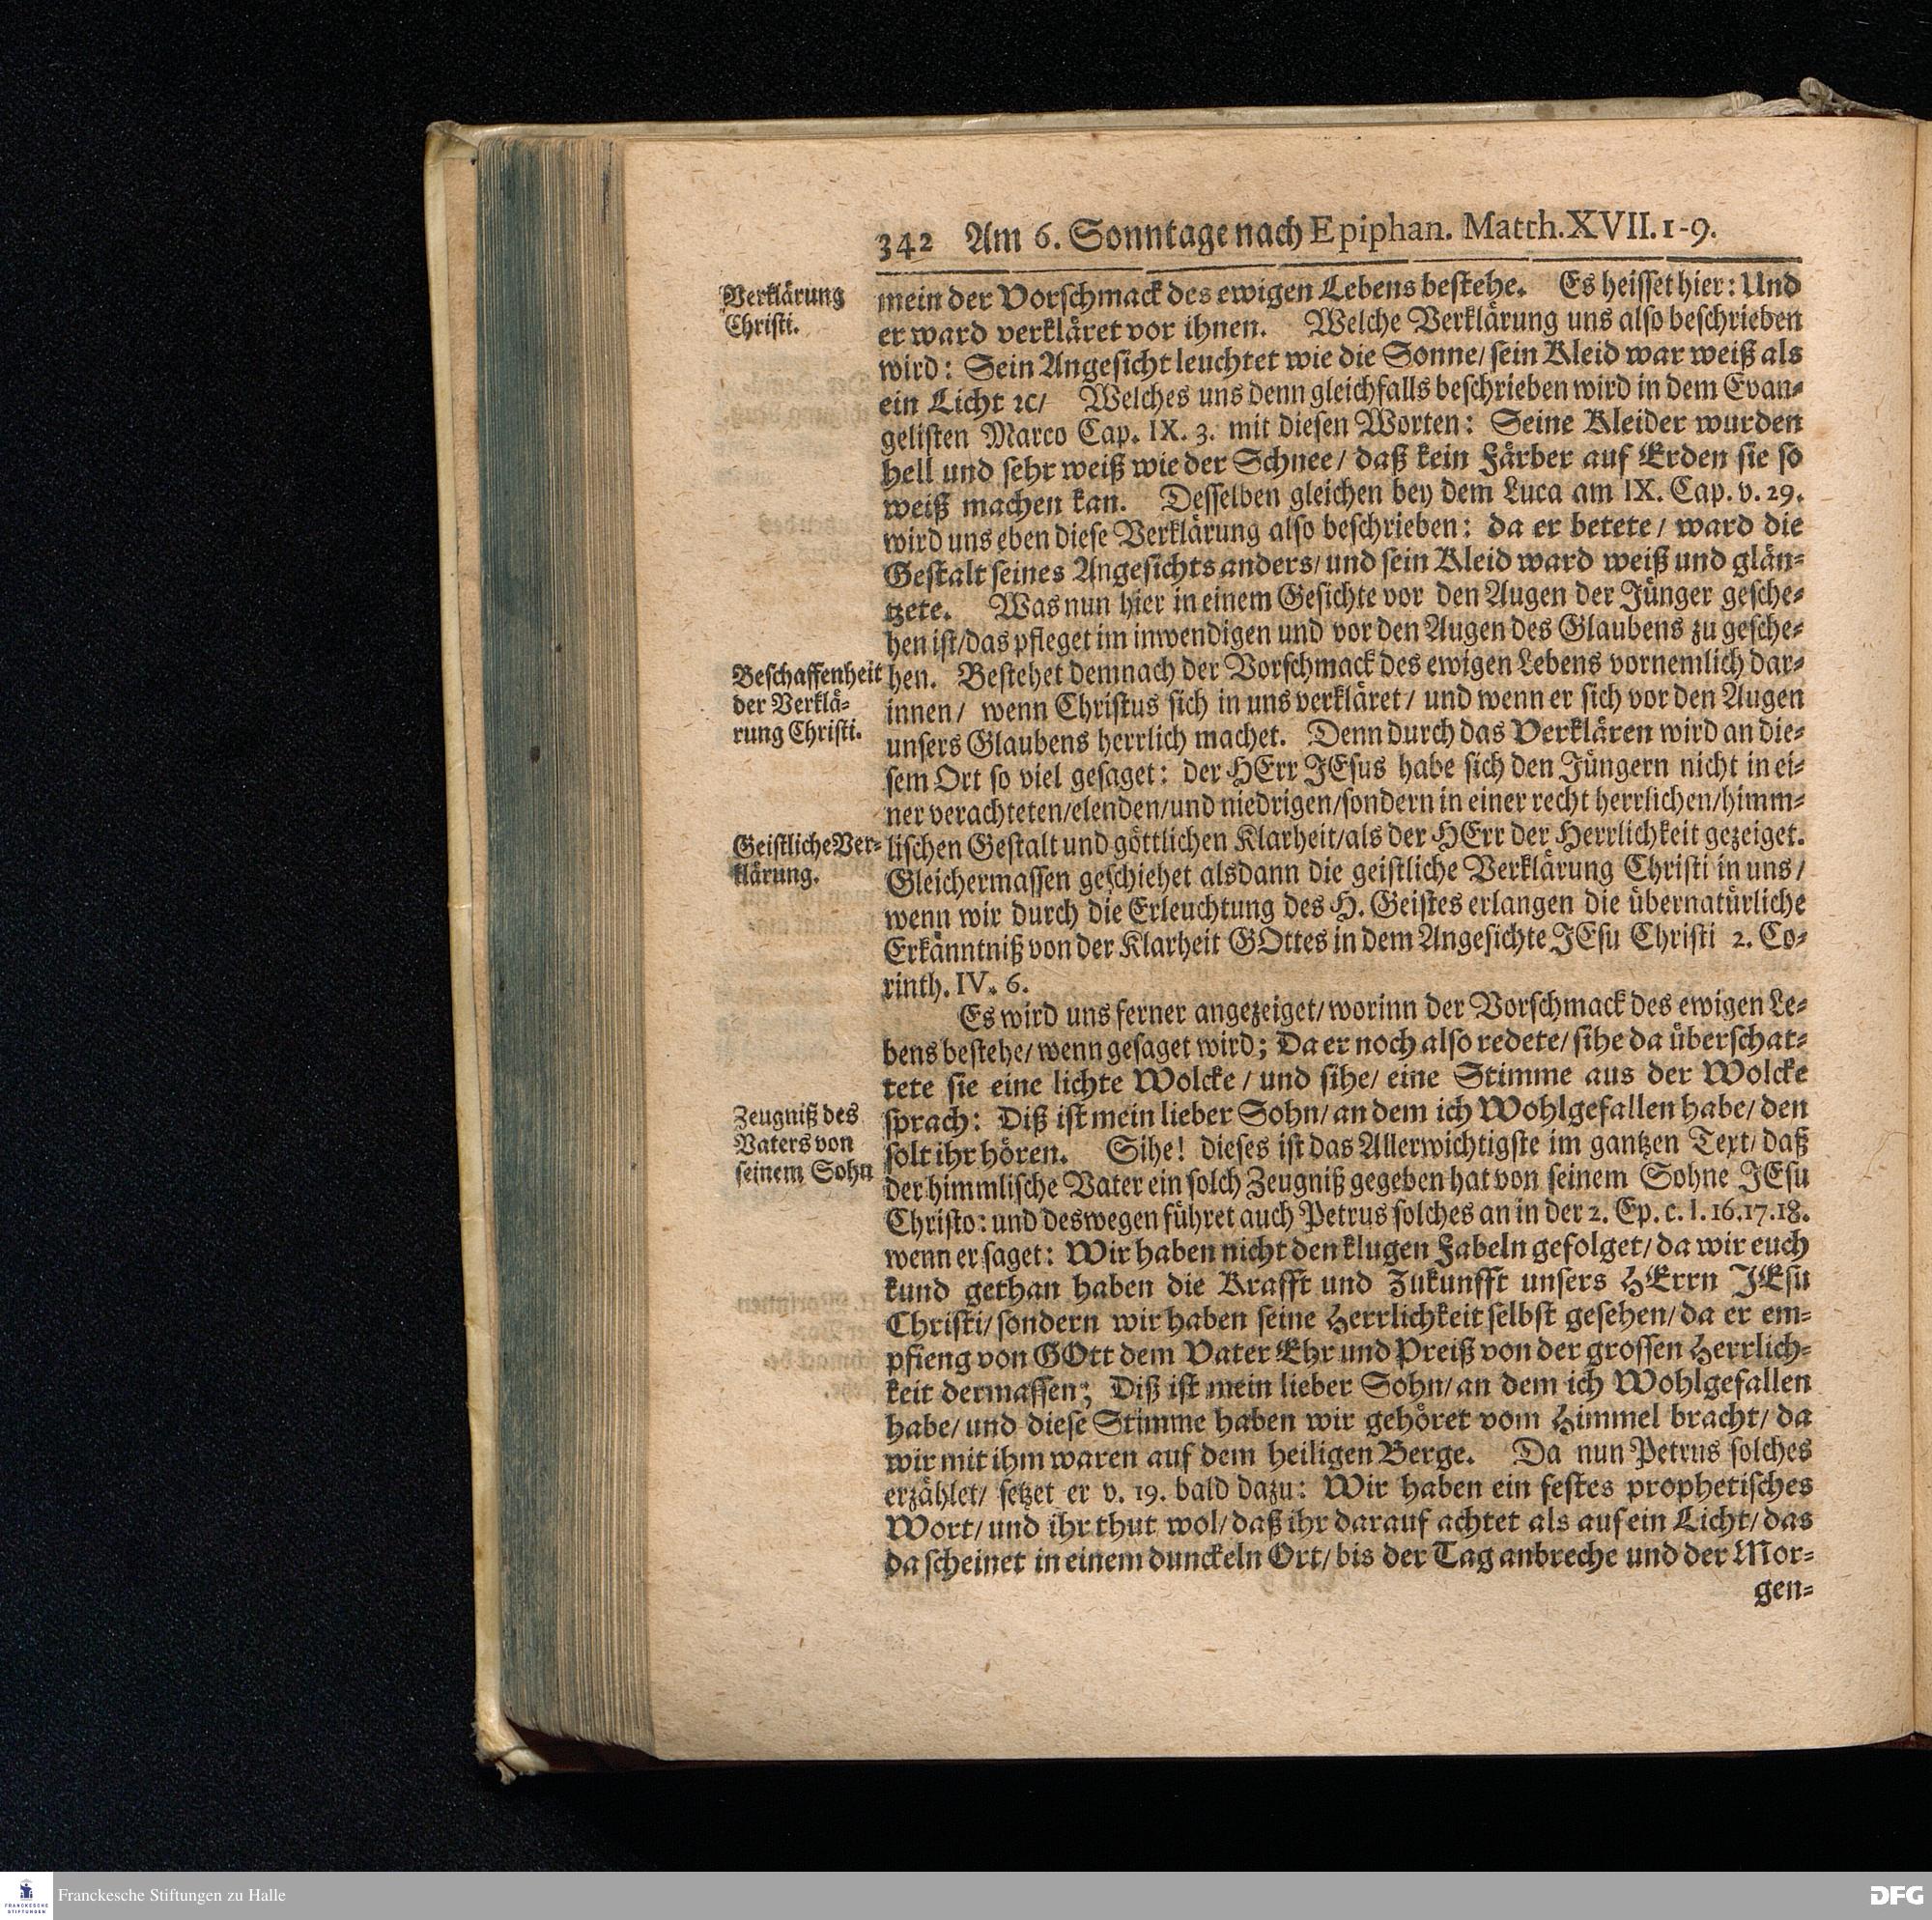 342 Am 6. Sonntage nach Epiphan. Matth. XVII. 1-9.
Verklärung
Christi.
mein der Vorschmack des ewigen Lebens bestehe. Es heisset hier: Und
er ward verkläret vor ihnen. Welche Verklärung uns also beschrieben
wird: Sein Angesicht leuchtet wie die Sonne/ sein Kleid war weiß als
ein Licht ꝛc/ Welches uns denn gleichfalls beschrieben wird in dem Evan-
gelisten Marco Cap. IX. 3. mit diesen Worten: Seine Kleider wurden
hell und sehr weiß wie der Schnee/ daß kein Färber auf Erden sie so
weiß machen kan. Desselben gleichen bey dem Luca am IX. Cap. v. 29.
wird uns eben diese Verklärung also beschrieben: da er betete/ ward die
Gestalt seines Angesichts anders/ und sein Kleid ward weiß und glän-
tzete. Was nun hier in einem Gesichte vor den Augen der Jünger gesche-
hen ist/ das pfleget im inwendigen und vor den Augen des Glaubens zu gesche-
Beschaffenheit
der Verklä-
rung Christi.
hen. Bestehet demnach der Vorschmack des ewigen Lebens vornemlich dar-
innen/ wenn Christus sich in uns verkläret/ und wenn er sich vor den Augen
unsers Glaubens herrlich machet. Denn durch das Verklären wird an die-
sem Ort so viel gesaget: der HErr JEsus habe sich den Jüngern nicht in ei-
ner verachteten/ elenden/ und niedrigen/ sondern in einer recht herrlichen/ himm-
Geistliche Ver-
klärung.
lischen Gestalt und göttlichen Klarheit/ als der HErr der Herrlichkeit gezeiget.
Gleichermassen geschiehet alsdann die geistliche Verklärung Christi in uns/
wenn wir durch die Erleuchtung des H. Geistes erlangen die übernatürliche
Erkänntniß von der Klarheit GOttes in dem Angesichte JEsu Christi 2. Co-
rinth. IV. 6.
Es wird uns ferner angezeiget/ worinn der Vorschmack des ewigen Le-
bens bestehe/ wenn gesaget wird; Da er noch also redete/ sihe da überschat-
tete sie eine lichte Wolcke/ und sihe/ eine Stimme aus der Wolcke
Zeugniß des
Vaters von
seinem Sohn
sprach: Diß ist mein lieber Sohn/ an dem ich Wohlgefallen habe/ den
solt ihr hören. Sihe! dieses ist das Allerwichtigste im gantzen Text/ daß
der himmlische Vater ein solch Zeugniß gegeben hat von seinem Sohne JEsu
Christo: und deswegen führet auch Petrus solches an in der 2. Ep. c. I. 16.17.18.
wenn er saget: Wir haben nicht den klugen Fabeln gefolget/ da wir euch
kund gethan haben die Krafft und Zukunfft unsers HErrn JEsu
Christi/ sondern wir haben seine Herrlichkeit selbst gesehen/ da er em-
pfieng von GOtt dem Vater Ehr und Preiß von der grossen Herrlich-
keit dermassen; Diß ist mein lieber Sohn/ an dem ich Wohlgefallen
habe/ und diese Stimme haben wir gehöret vom Himmel bracht/ da
wir mit ihm waren auf dem heiligen Berge. Da nun Petrus solches
erzählet/ setzet er v. 19. bald dazu: Wir haben ein festes prophetisches
Wort/ und ihr thut wol/ daß ihr darauf achtet als auf ein Licht/ das
da scheinet in einem dunckeln Ort/ bis der Tag anbreche und der Mor-
gen-
FRANCKESCHE
STIFTUNGEN
Franckesche Stiftungen zu Halle
DFG